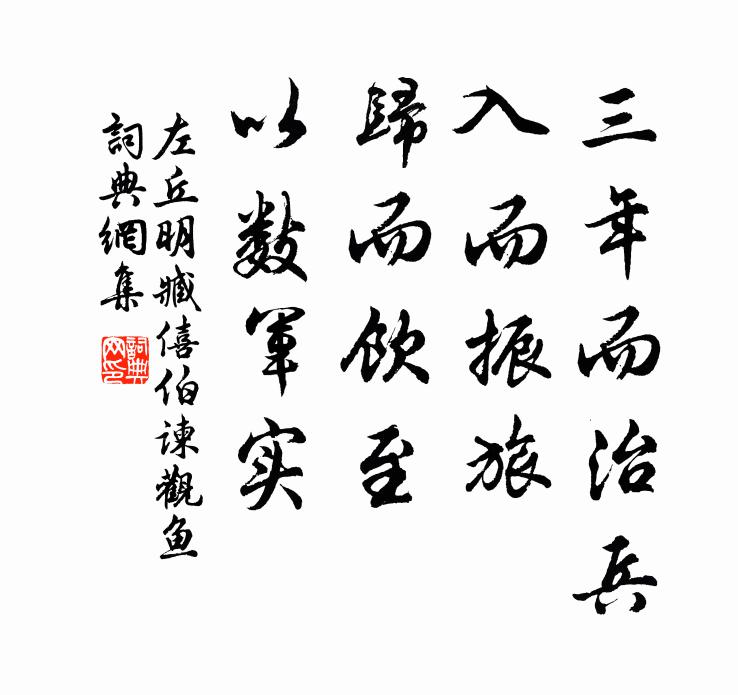 三年而治兵
入而振旅
歸而飲至
以数軍实
左丘明臧僖伯谏觀鱼
詞典網集
詞典网印